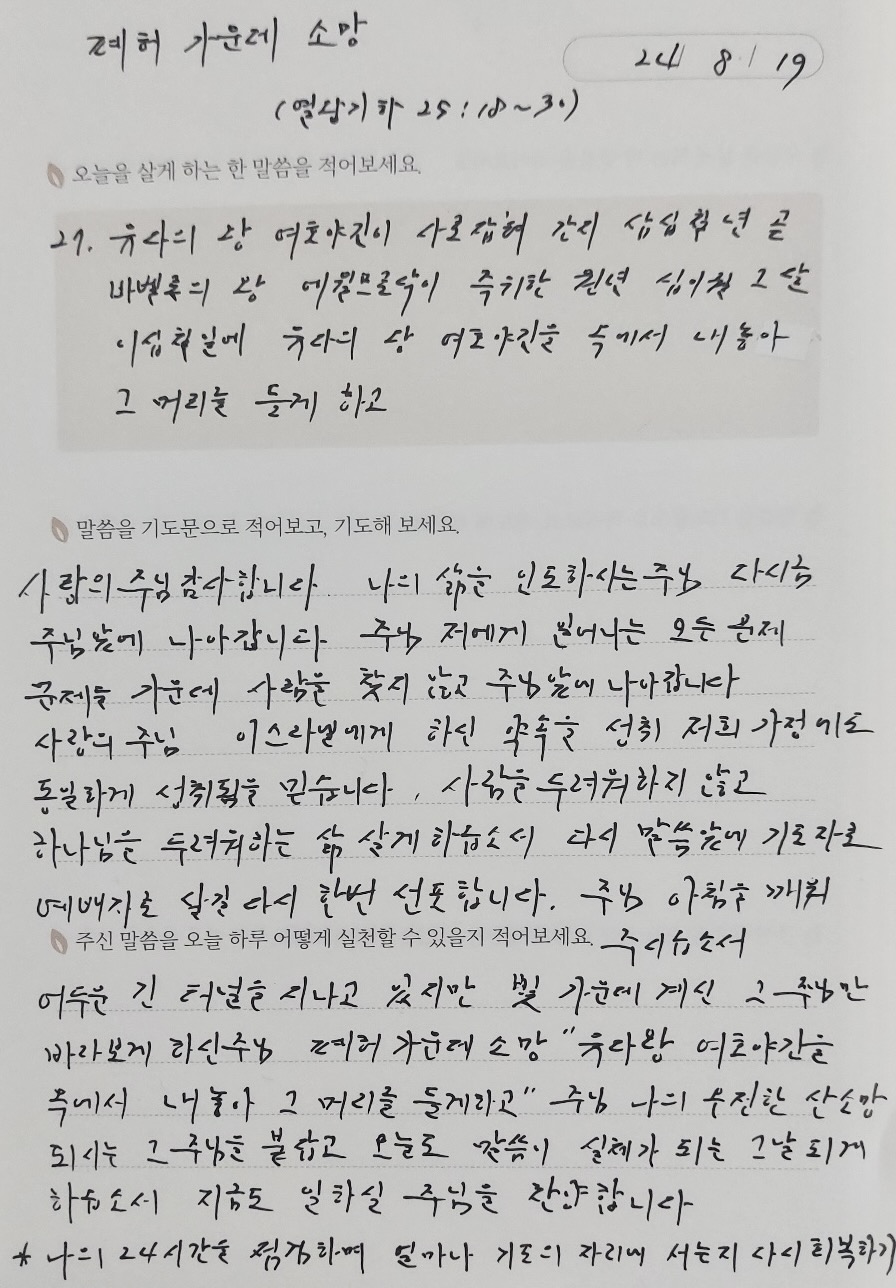 폐허 가운데 소망
24 8 19
(열왕기하 25:18~30)
오늘을 살게 하는 한 말씀을 적어보세요.
27. 유다의 왕 여호야긴이 사로잡혀 간지 삼십칠년 곧
바벨론의 왕 에윌므로닥이 즉위한 원년 십이월 그 달
이십칠일에 유다의 왕 여호야긴을 옥에서 내놓아
그 머리를 들게 하고
말씀을 기도문으로 적어보고, 기도해 보세요.
사랑의 주님 감사합니다. 나의 삶을 인도하시는 주님 다시금
주님앞에 나아갑니다 주님 저에게 일어나는 모든 문제
문제들 가운데 사람을 찾지 않고 주님앞에 나아갑니다
사랑의 주님 이스라엘에게 하신 약속을 성취 저희 가정에도
동일하게 성취됨을 믿습니다. 사람을 두려워하지 않고
하나님을 두려워하는 삶 살게 하옵소서 다시 말씀앞에 기도자로
예배자로 살길 다시 한번 선포합니다. 주님 아침을 깨워
주시옵소서
주신 말씀을 오늘 하루 어떻게 실천할 수 있을지 적어보세요.
어두운 긴 터널을 지나고 있지만 빛 가운데 계신 그 주님만
바라보게 하신주님 폐허 가운데 소망 "유다왕 여호야긴을
옥에서 내놓아 그 머리를 들게하고" 주님 나의 산소망
되시는 그 주님을 붙잡고 오늘도 말씀이 실체가 되는 그날 되게
하옵소서 지금도 일하실 주님을 찬양합니다
* 나의 24시간을 점검하며 얼마나 기도의 자리에 서는지 다시 회복하기